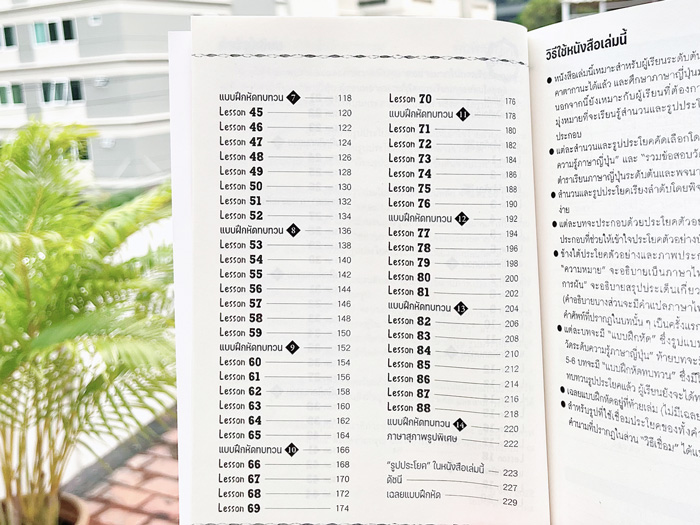 แบบฝึกหัดทบทวน 7 118
Lesson 45 120
Lesson 46 122
Lesson 47 124
Lesson 48 126
Lesson 49 128
Lesson 50 130
Lesson 51 132
Lesson 52 134
แบบฝึกหัดทบทวน 8 136
Lesson 53 138
Lesson 54 140
Lesson 55 142
Lesson 56 144
Lesson 57 146
Lesson 58 148
Lesson 59 150
แบบฝึกหัดทบทวน 9 152
Lesson 60 154
Lesson 61 156
Lesson 62 158
Lesson 63 160
Lesson 64 162
Lesson 65 164
แบบฝึกหัดทบทวน 10 166
Lesson 66 168
Lesson 67 170
Lesson 68 172
Lesson 69 174
Lesson 70 176
แบบฝึกหัดทบทวน 11 178
Lesson 71 180
Lesson 72 182
Lesson 73 184
Lesson 74 186
Lesson 75 188
Lesson 76 190
แบบฝึกหัดทบทวน 12 192
Lesson 77 194
Lesson 78 196
Lesson 79 198
Lesson 80 200
Lesson 81 202
แบบฝึกหัดทบทวน 13 204
Lesson 82 206
Lesson 83 208
Lesson 84 210
Lesson 85 212
Lesson 86 214
Lesson 87 216
Lesson 88 218
แบบฝึกหัดทบทวน 14 220
ภาษาสุภาพรูปพิเศษ 222
"รูปประโยค" ในหนังสือเล่มนี้ 223
ดัชนี 227
เฉลยแบบฝึกหัด 229
วิธีใช้หนังสือเล่มนี้
● หนังสือเล่มนี้เหมาะสำหรับผู้เรียนระดับต้น
คาตากานะได้แล้ว และศึกษาภาษาญี่ปุ่น
นอกจากนี้ยังเหมาะกับผู้เรียนที่ต้องการ
มุ่งหมายที่จะเรียนรู้สำนวนและรูปประโยค
ประกอบ
● แต่ละสำนวนและรูปประโยคคัดเลือกโดย
ความรู้ภาษาญี่ปุ่น" และ "รวมข้อสอบวัด
ตำราเรียนภาษาญี่ปุ่นระดับต้นและ
● สำนวนและรูปประโยคเรียงลำดับโดย
ง่าย
● แต่ละบทจะประกอบด้วยประโยคตัวอย่าง
ประกอบที่ช่วยให้เข้าใจประโยคตัวอย่าง
● ข้างใต้ประโยคตัวอย่างและภาพประกอบ
"ความหมาย" จะอธิบายเป็นภาษาไทย
การผัน" จะอธิบายสรุปประเด็นเกี่ยว
(คำอธิบายบางส่วนจะมีคำแปลภาษา
คำศัพท์ที่ปรากฏในบทนั้น ๆ เป็นครั้งแรก
● แต่ละบทจะมี "แบบฝึกหัด" ซึ่งรูปแบบ
วัดระดับความรู้ภาษาญี่ปุ่น" ท้ายบท
5-6 บทจะมี "แบบฝึกหัดทบทวน"
ทบทวนรูปประโยคแล้ว ผู้เรียนยังจะได้
● เฉลยแบบฝึกหัดอยู่ที่ท้ายเล่ม (ไม่มีเฉลย
● สำหรับรูปที่ใช้เชื่อมประโยคของทั้ง
คำนามที่ปรากฏในส่วน "วิธีเชื่อม" ได้แก่